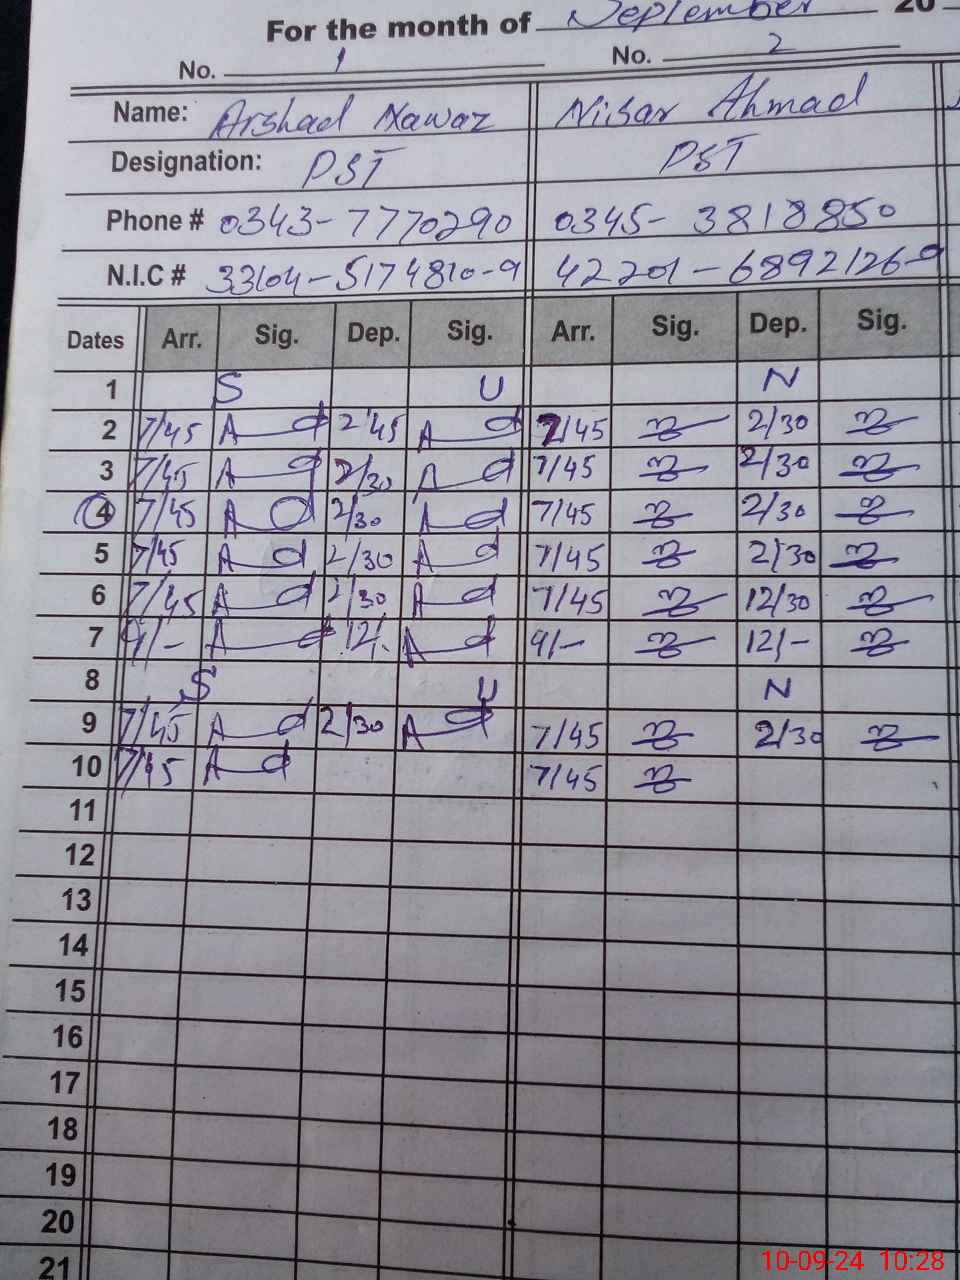 For the month of September 20
No. 1 No. 2
Name: Arshad Nawaz Nisar Ahmad
Designation: PST PST
Phone # 0343-7770290 0345-3818850
N.I.C # 33104-5174810-9 42201-6892126-9
Dates Arr. Sig. Dep. Sig. Arr. Sig. Dep. Sig.
1 S U N
2 7/45 2/45 7/45 2/30
3 7/45 2/30 7/45 2/30
4 7/45 2/30 7/45 2/30
5 7/45 2/30 7/45 2/30
6 7/45 2/30 7/45 12/30
7 9/- 12/- 9/- 12/-
8 S U N
9 7/45 2/30 7/45 2/30
10 7/45 7/45
11
12
13
14
15
16
17
18
19
20
21
10-09-24 10:28